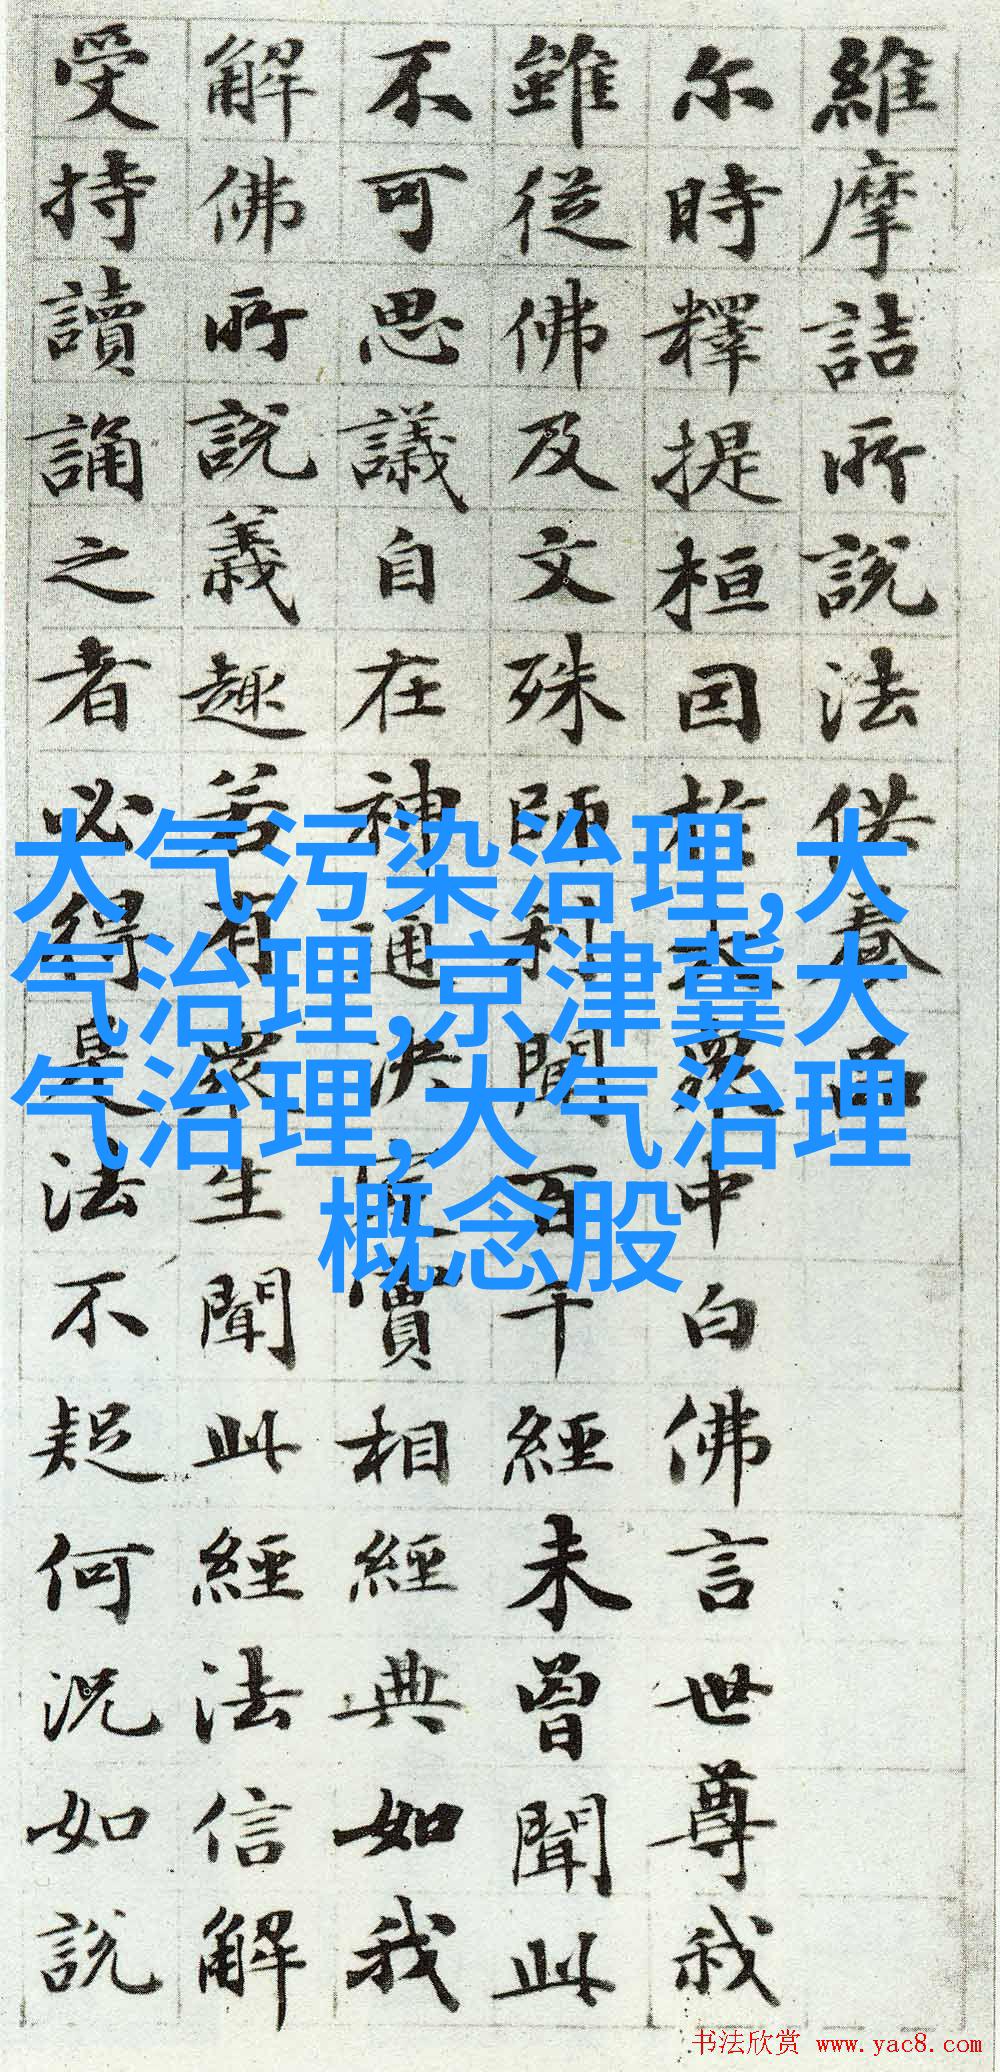 維摩詰所說法供養品
尔時釋提桓因於大眾中白佛言世尊我
雖從佛及文殊師利聞百千經未曾聞此
不可思議自在神通決定實相經典如我
解佛所說義趣若有眾生聞此經法信解
受持讀誦之者必得是法不疑何況如說
大气污染治理,大
气治理,京津冀大
气治理,大气治理
概念股
书法欣赏 www.yac8.com